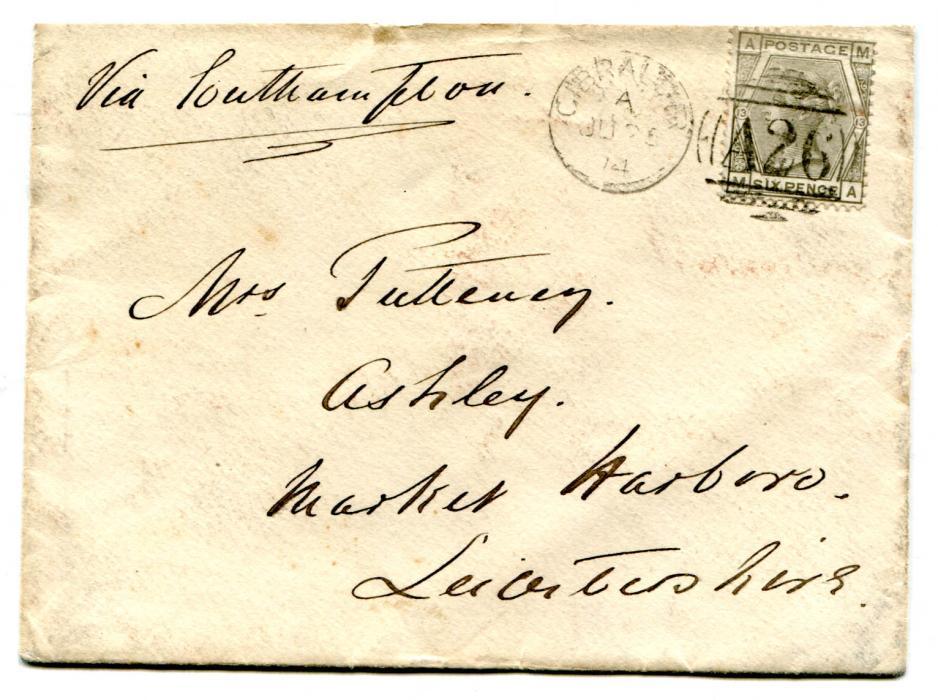 Via Southampton.
GIBRALTAR
A
JU 25
74
A POSTAGE M
13 13
A26
M SIX PENCE A
Mrs Pulteney.
Ashley.
Market Harboro.
Leicestershire.